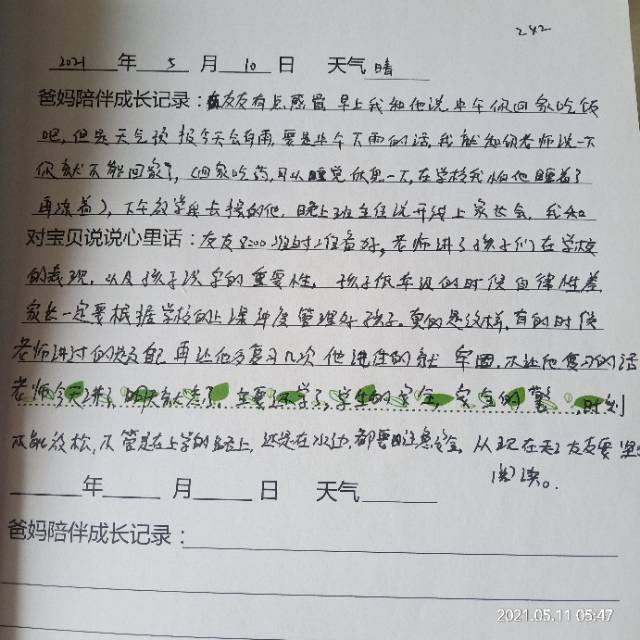 242
2021年5月10日 天气晴
爸妈陪伴成长记录：友友有点感冒早上我和他说中午你回家吃饭
吧，但是天气预报今天会有雨，要是中午下雨的话，我就和你老师说一下
你就不能回家了，（回家吃药，可以睡觉休息一下，在学校我怕他睡着了
再凉着），下午放学是长接的他，晚上班主任说开线上家长会，我和
对宝贝说说心里话：友友8:00准时上线看好，老师讲了孩子们在学校
的表现，以及孩子识字的重要性，孩子低年级的时候自律性差
家长一定要根据学校的上课进度管理好孩子，真的是这样，有的时候
老师讲过的段自己再让他多复习几次他进住的就牢固，不让他复习的话
老师今天讲，明天就忘了，主要还学了，学生的安全，安全的警，时刻
不能放松，不管是在上学的路上，还是在水边，都要注意安全，从现在起友友要坚
阅读。
年 月 日 天气
爸妈陪伴成长记录：
2021.05.11 05:47